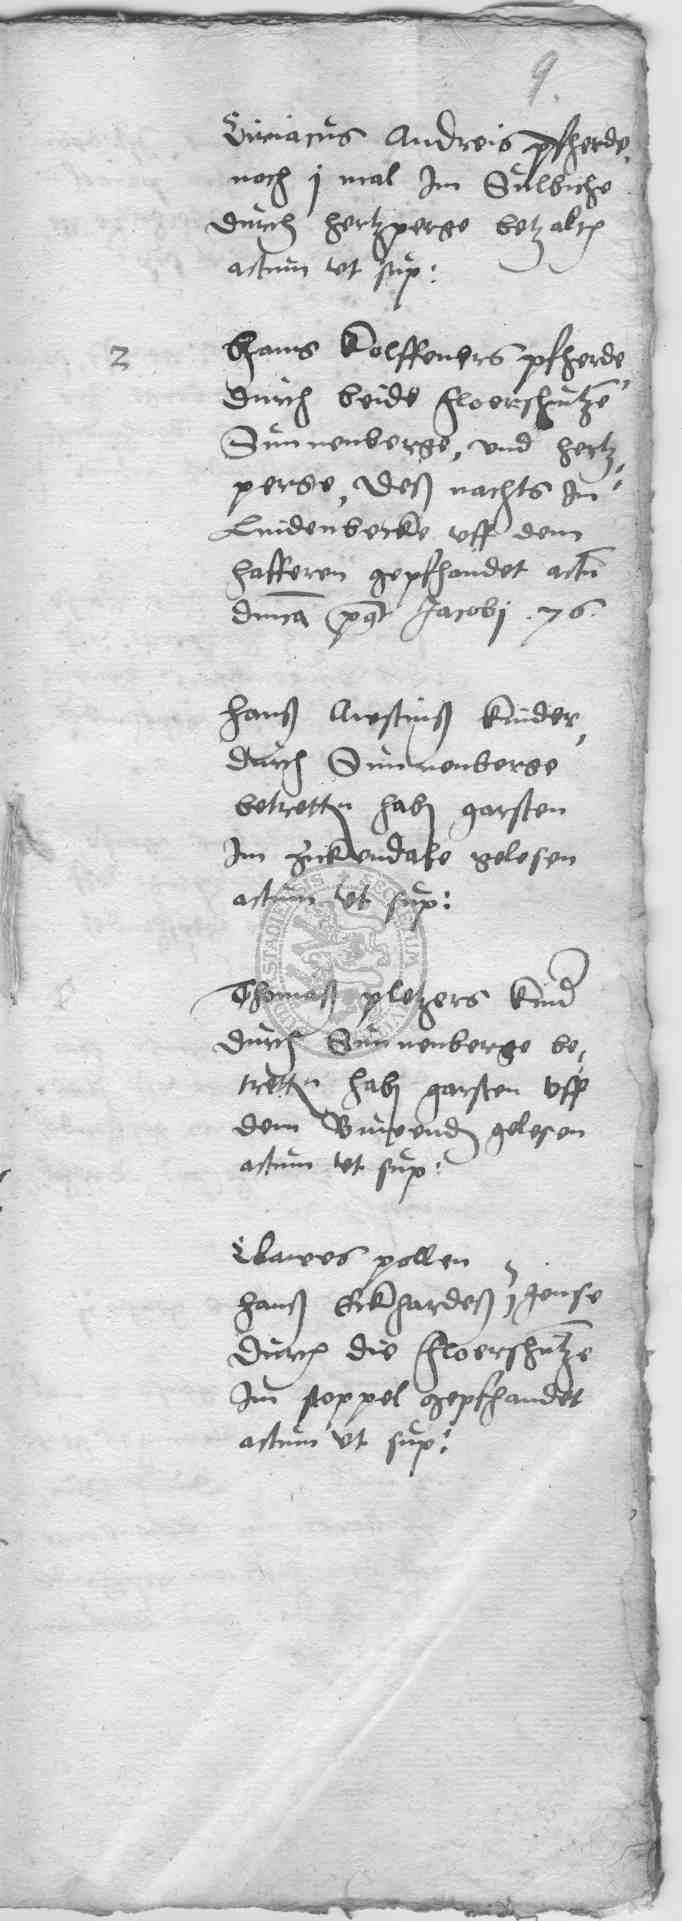 9.
Ciriacus Andreis pfherde,
noch j mal Im Sulbiche
durch hertzperge betzalt
actum ut sup:
2
Hans Kolffeners pfherde,
durch beide floerschutze
Sunnenberge, und hertz,
perge, deß nachts In
Lindenbecke uff dem
hafferen gepfhandet actu
dnica pt Jacobj .76.
Hanß Awestinß kinder,
durch Sunnenberge
betrettn habj garsten
Im gelesen
actum ut sup:
Thomaß pletzers kind
durch Sunnenberge be,
trettn habj garsten uff
dem gelesen
actum ut sup:
Clawes pollen
Hanß Eckhardeß gense
durch die floerschutze
Im stoppel gepfhandet
actum ut sup: